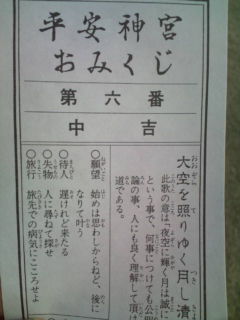 平安神宮
おみくじ
第六番
中吉
大空を照りゆく月し清
此歌の意は「夜空に輝く月は誠に
という事で、何事につけても公明
論の事、人にも良く理解して頂け
道である。
〇願望 始めは思わしからねど、後に
なりて叶う
〇待人 遅けれど来たる
〇失物 人に尋ねて探せ
〇旅行 旅先での病気にこころせよ